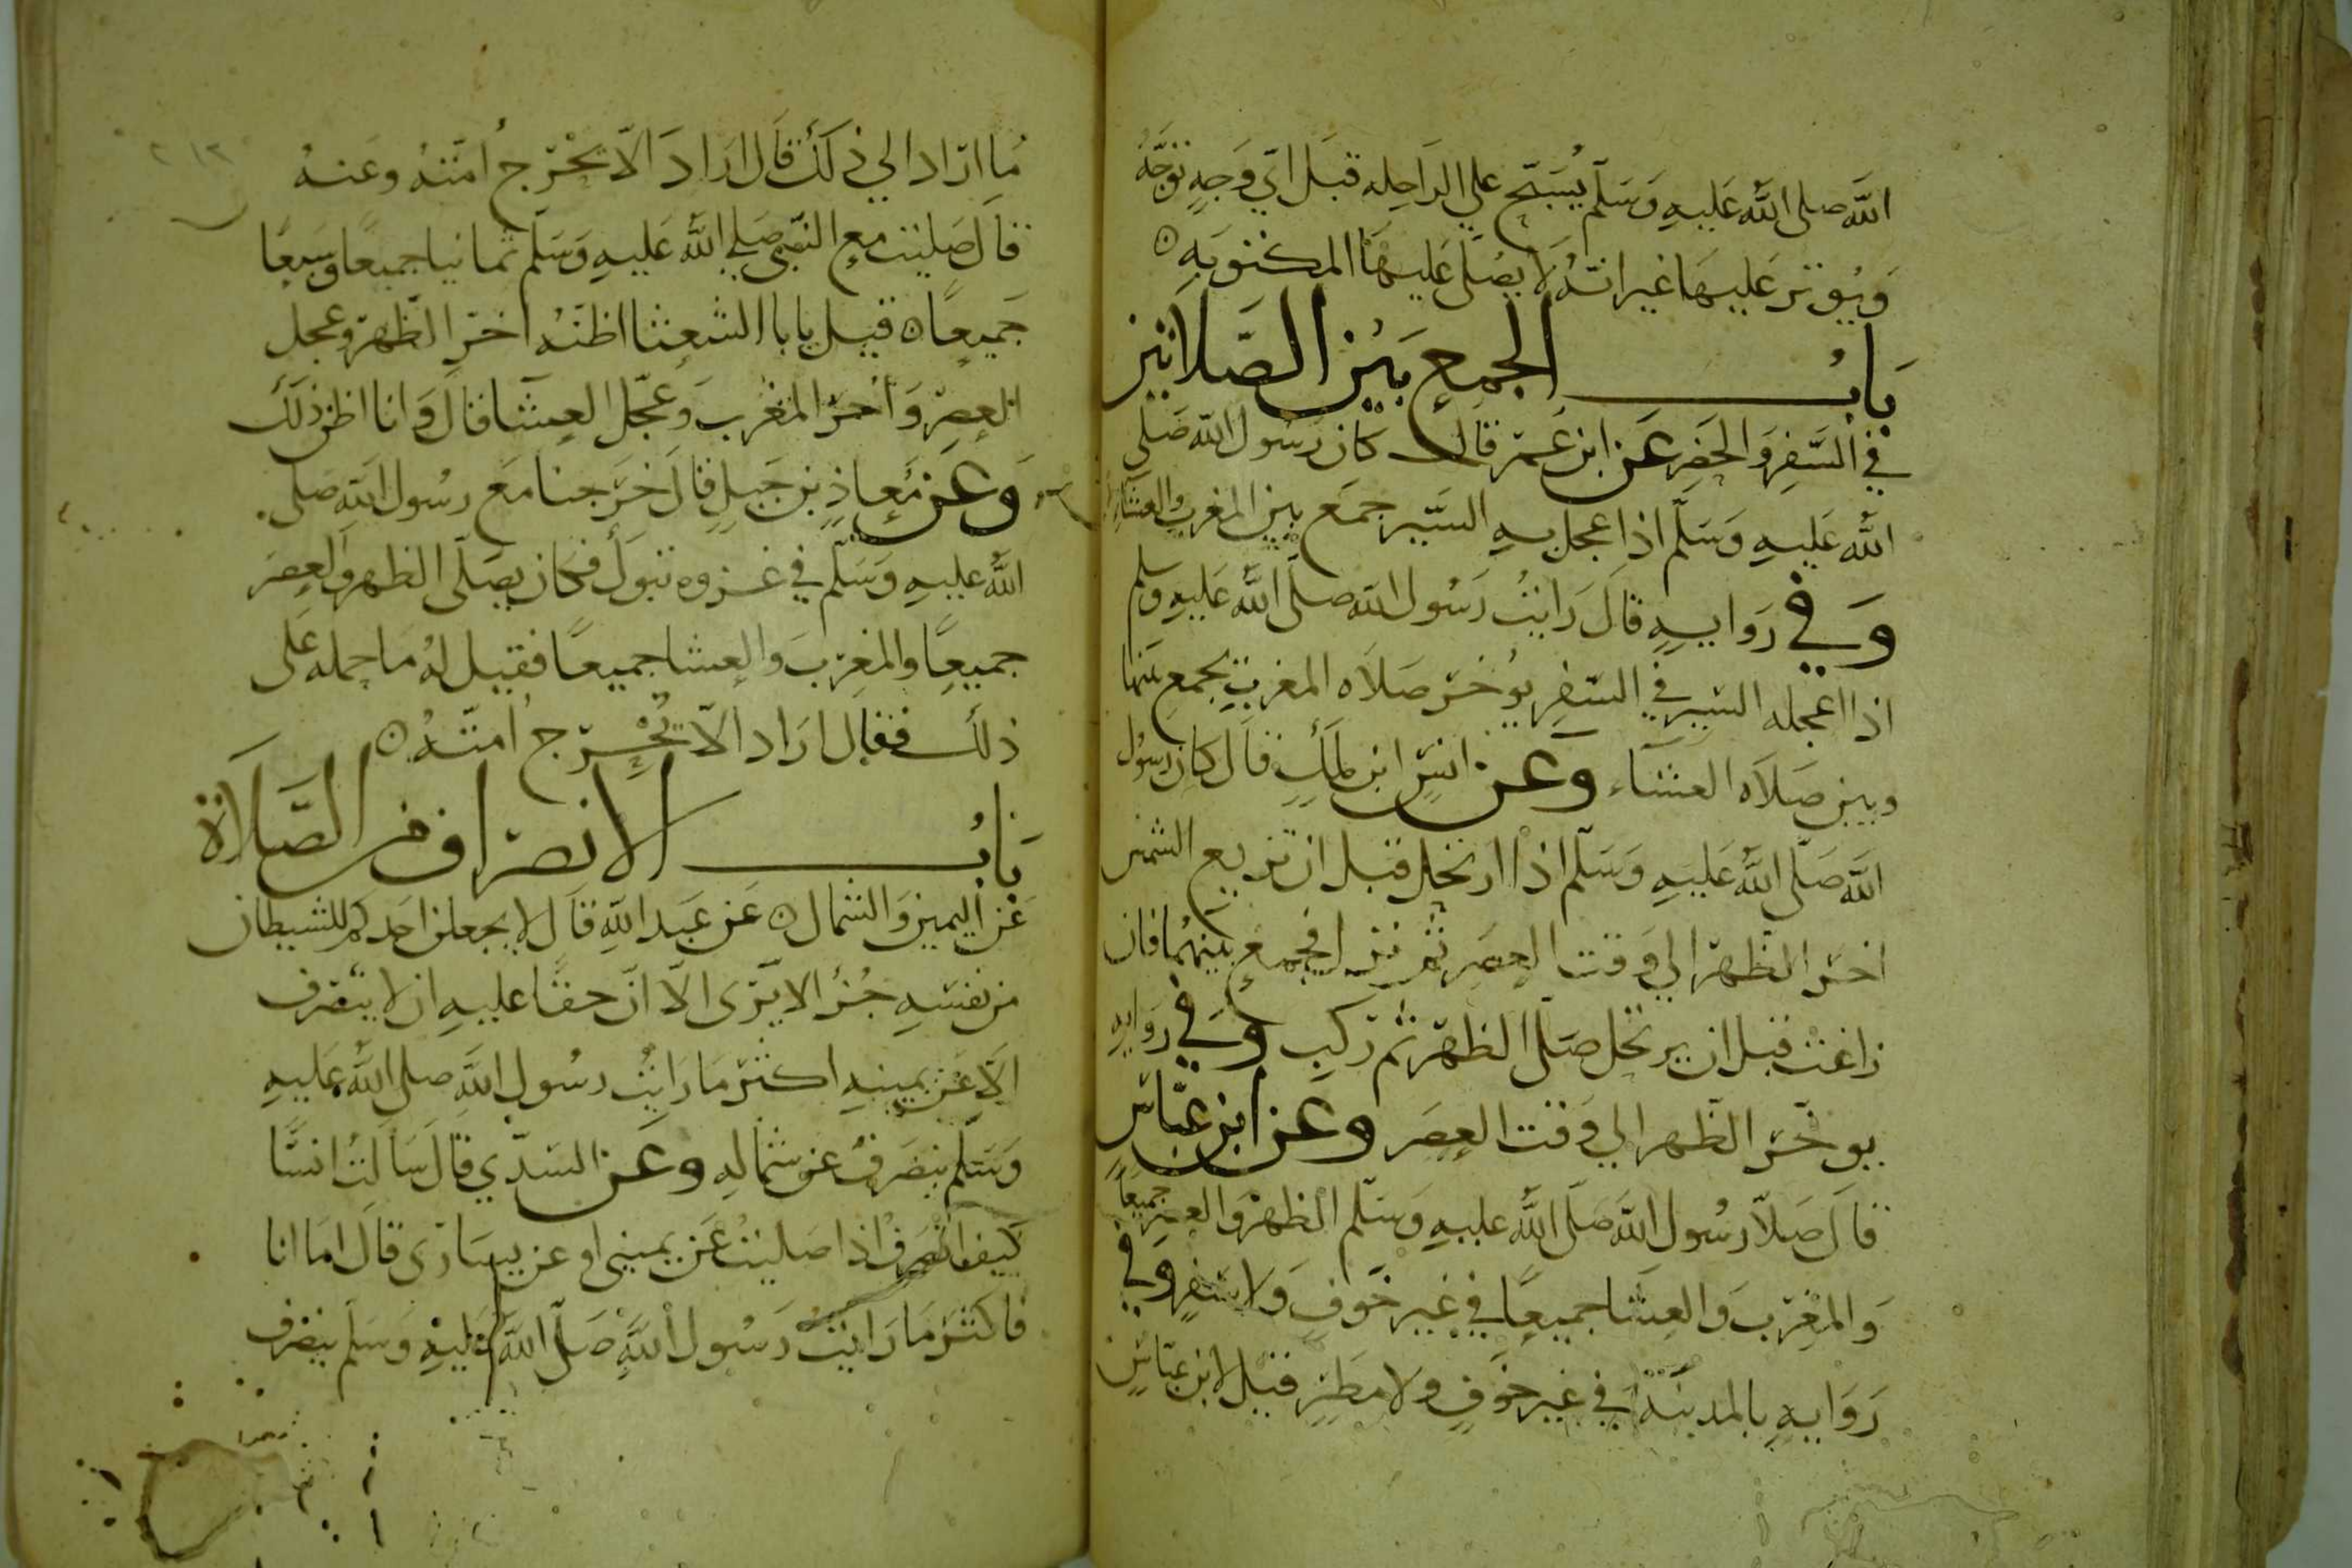 الله صلى الله عليه وسلم يسبح على الراحله قبل اي وجه توجه
ويوتر عليها غير انه لا يصلى عليها المكتوبه ن
باب الجمع بين الصلاتين
في السفر والحضر عن ابن عمر قال كان رسول الله صلى
الله عليه وسلم اذا عجل به السير جمع بين المغرب والعشاء
وفي روايه قال رايت رسول الله صلى الله عليه وسلم
اذا اعجله السير في السفر يوخر صلاه المغرب يجمع بينها
وبين صلاه العشاء وعن انس ابن ملك قال كان رسول
الله صلى الله عليه وسلم اذا ارتحل قبل ان تزيع الشمس
اخر الظهر الي وقت العصر ثم نزل فجمع بينهما فان
زاغت قبل ان يرتحل صلى الظهر ثم ركب وفي روايه
يوخر الظهر الي وقت العصر وعن ابن عباس
قال صلا رسول الله صلى الله عليه وسلم الظهر والعصر جميعا
والمغرب والعشا جميعا في غير خوف ولا سفر وفي
روايه بالمدينه في غير خوف ولا مطر قيل لابن عباس
ما اراد الي ذلك قال اراد الا تحرج امته وعنه
قال صليت مع النبي صلي الله عليه وسلم ثمانيا جميعا وسبعا
جميعا ن قيل يابا الشعثا اظنه اخر الظهر وعجل
العصر واخر المغرب وعجل العشا قال وانا اظن ذلك
وعن معاذ بن جبل قال خرجنا مع رسول الله صلى
الله عليه وسلم في غزوه تبوك فكان يصلى الظهر والعصر
جميعا والمغرب والعشا جميعا فقيل له ما حمله على
ذلك فقال اراد الا تحرج امته ن
باب الانصراف من الصلاة
عن اليمين والشمال ن عن عبد الله قال لا يجعلن احدكم للشيطان
من نفسه جزا لا يرى الا ان حقا عليه ان لا ينصرف
الا عن يمينه اكثر ما رايت رسول الله صلى الله عليه
وسلم ينصرف عن شماله وعن السدي قال سالت انسا
كيف انصرف اذا صليت عن يمينى او عن يسارى قال اما انا
فاكثر ما رايت رسول الله صلى الله عليه وسلم ينصرف